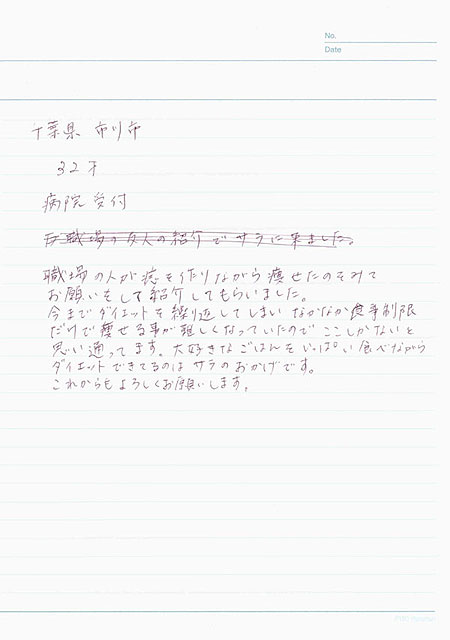 No.
Date
千葉県 市川市
32才
病院受付
職場の友人の紹介でサラに来ました。
職場の人が恋を作りながら痩せたのをみて
お願いをして紹介してもらいました。
今までダイエットを繰り返してしまいなかなか食事制限
だけで痩せる事が難しくなっていたのでここしかないと
思い通ってます。大好きなごはんをいっぱい食べながら
ダイエットできてるのはサラのおかげです。
これからもよろしくお願いします。